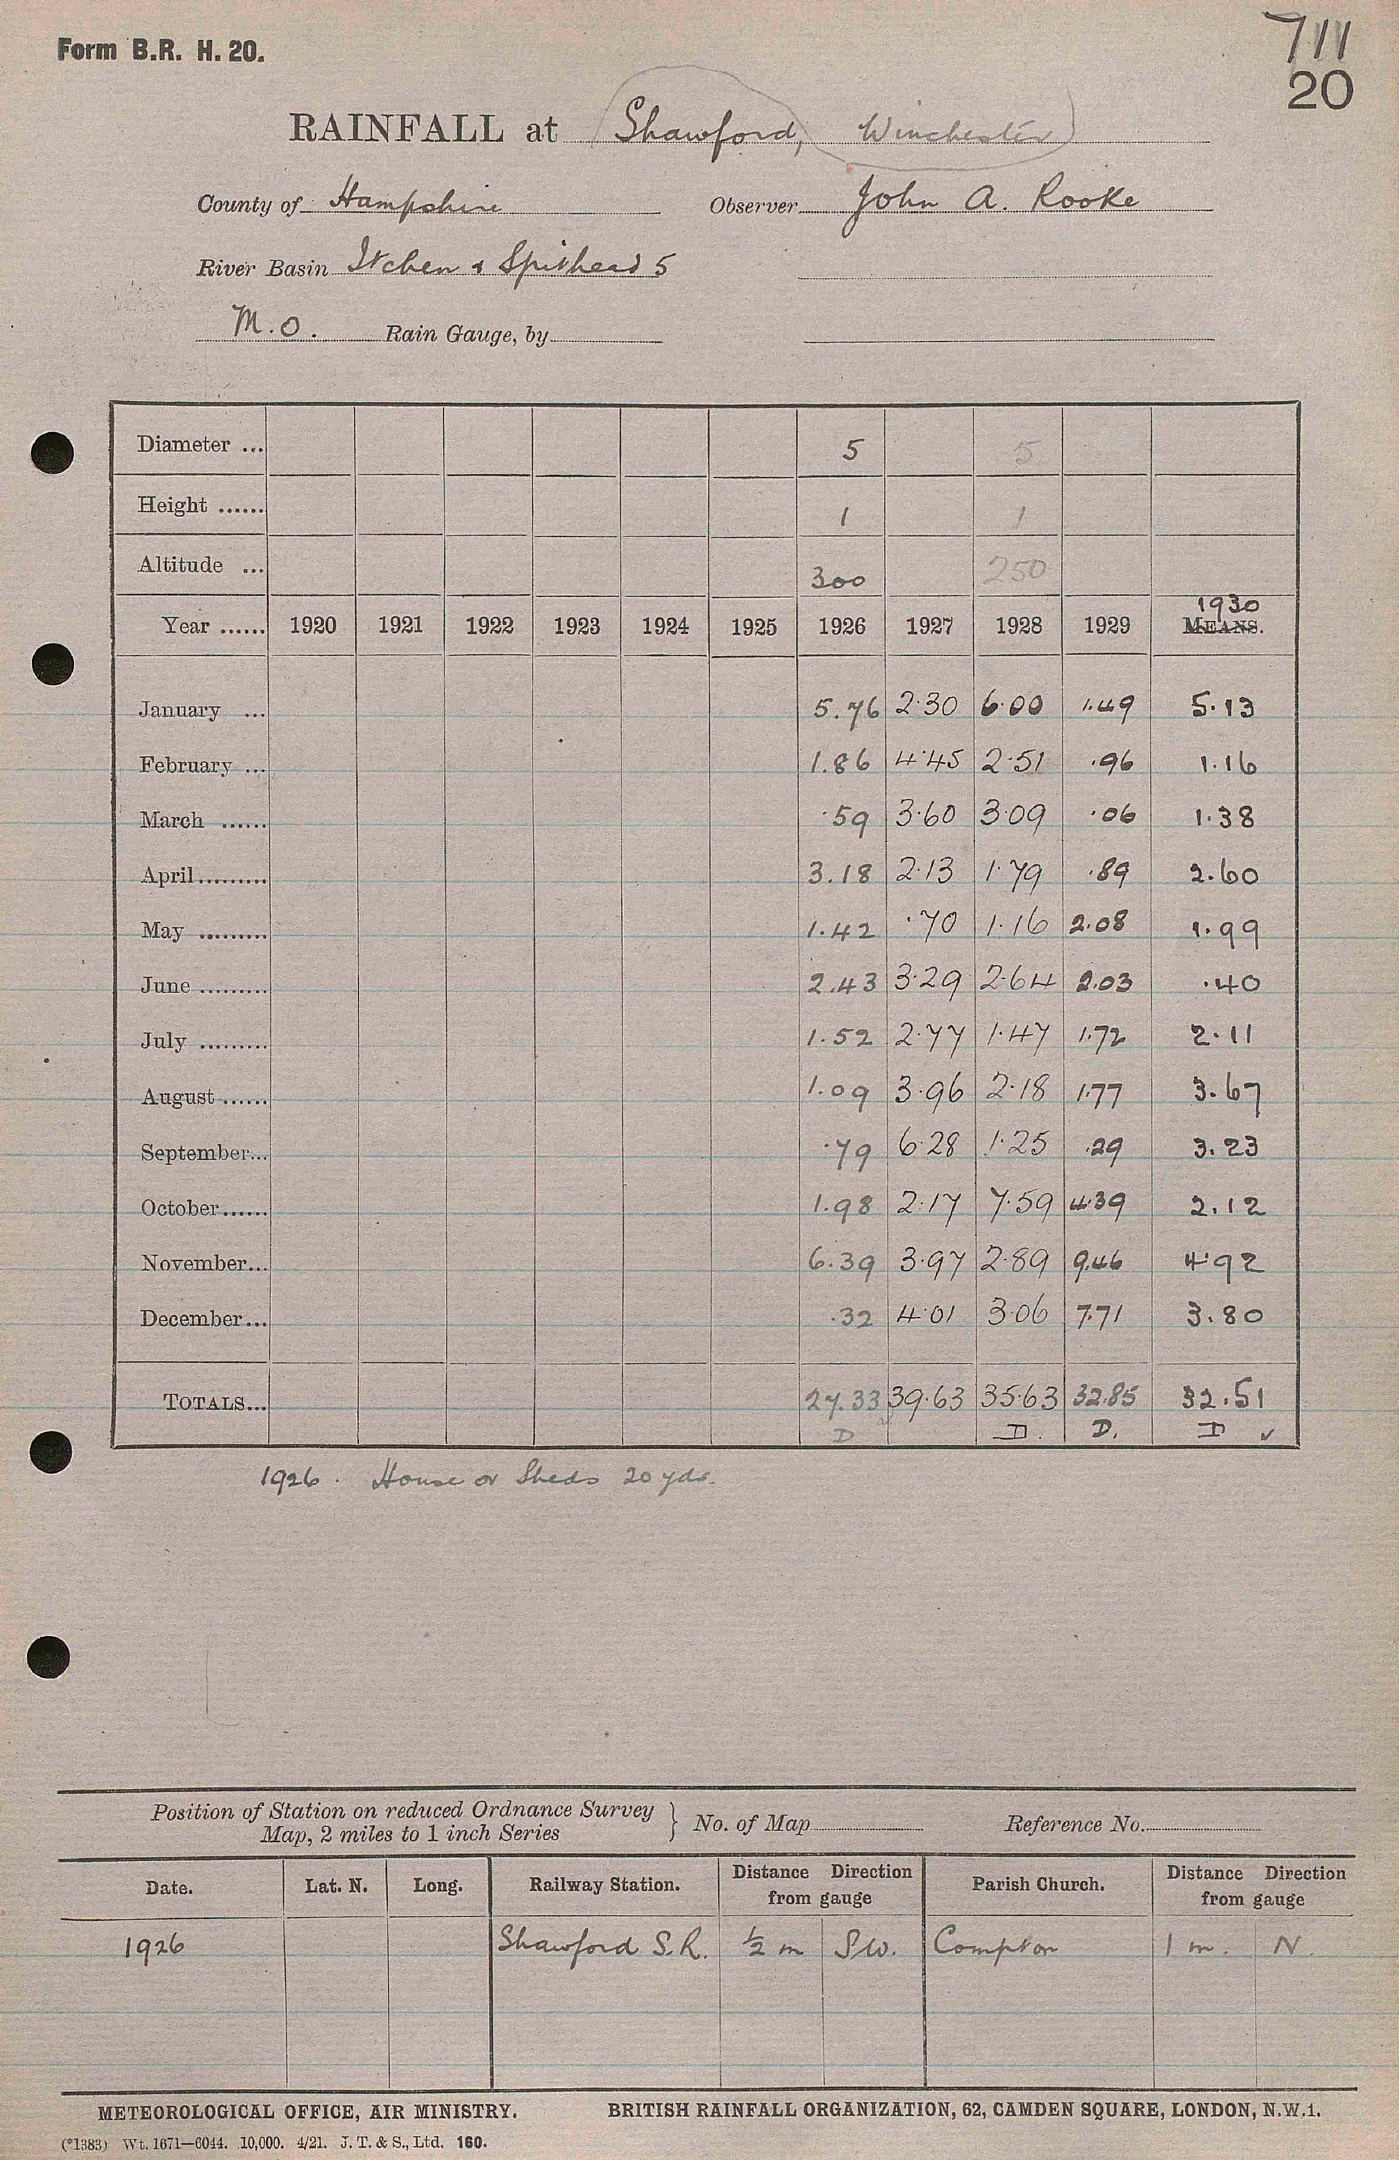 Form B.R. H. 20.
711
20
RAINFALL at Shawford, Winchester
County of Hampshire Observer John A. Rooke
River Basin Itchen & Spithead 5
M.O. Rain Gauge, by
Diameter ... 5 5
Height ...... 1 1
Altitude ... 300 250
1930
Year ...... 1920 1921 1922 1923 1924 1925 1926 1927 1928 1929 MEANS.
January ... 5.76 2.30 6.00 1.49 5.13
February ... 1.86 4.45 2.51 .96 1.16
March ...... .59 3.60 3.09 .06 1.38
April ......... 3.18 2.13 1.79 .89 2.60
May ......... 1.42 .70 1.16 2.08 1.99
June ......... 2.43 3.29 2.64 2.03 .40
July ......... 1.52 2.77 1.47 1.72 2.11
August ...... 1.09 3.96 2.18 1.77 3.67
September... .79 6.28 1.25 .29 3.23
October...... 1.98 2.17 7.59 4.39 2.12
November... 6.39 3.97 2.89 9.46 4.92
December... .32 4.01 3.06 7.71 3.80
TOTALS... 27.33 39.63 35.63 32.85 32.51
D D. D. I ✓
1926. House or Sheds 20 yds.
Position of Station on reduced Ordnance Survey
Map, 2 miles to 1 inch Series } No. of Map Reference No.
Date. Lat. N. Long. Railway Station. Distance Direction from gauge Parish Church. Distance Direction from gauge
1926 Shawford S.R. ½ m S.W. Compton 1 m. N.
METEOROLOGICAL OFFICE, AIR MINISTRY. BRITISH RAINFALL ORGANIZATION, 62, CAMDEN SQUARE, LONDON, N.W.1.
(*1383) Wt. 1671—6044. 10,000. 4/21. J. T. & S., Ltd. 160.